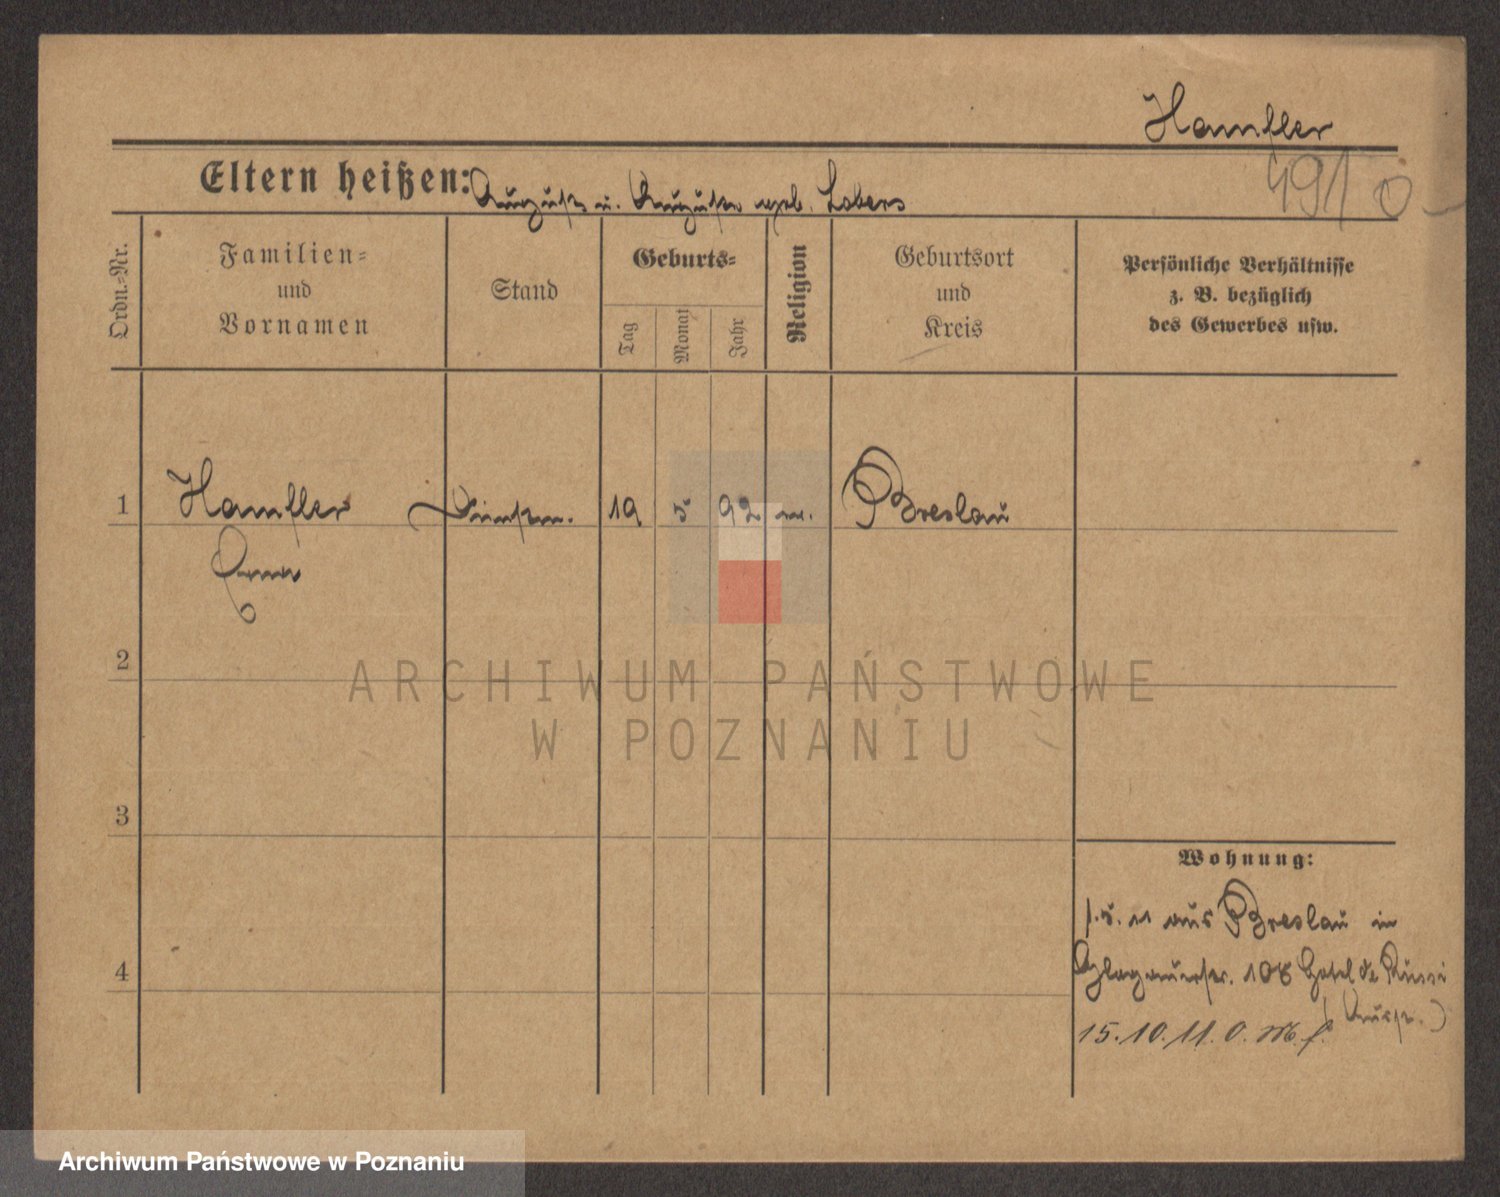 Hamfler
4910
Eltern heißen: August u. Auguste geb. Lobers
Ordn.-Nr.
Familien-
und
Vornamen
Stand
Geburts-
Tag
Monat
Jahr
Religion
Geburtsort
und
Kreis
Persönliche Verhältnisse
z. B. bezüglich
des Gewerbes usw.
1 Hamfler 19 5 92 Breslau
Anna
2
3
4
Wohnung:
1.5.11 aus Breslau in
Glogauerstr. 108 Hotel de
15.10.11. O. M. f.
ARCHIWUM PAŃSTWOWE
W POZNANIU
Archiwum Państwowe w Poznaniu